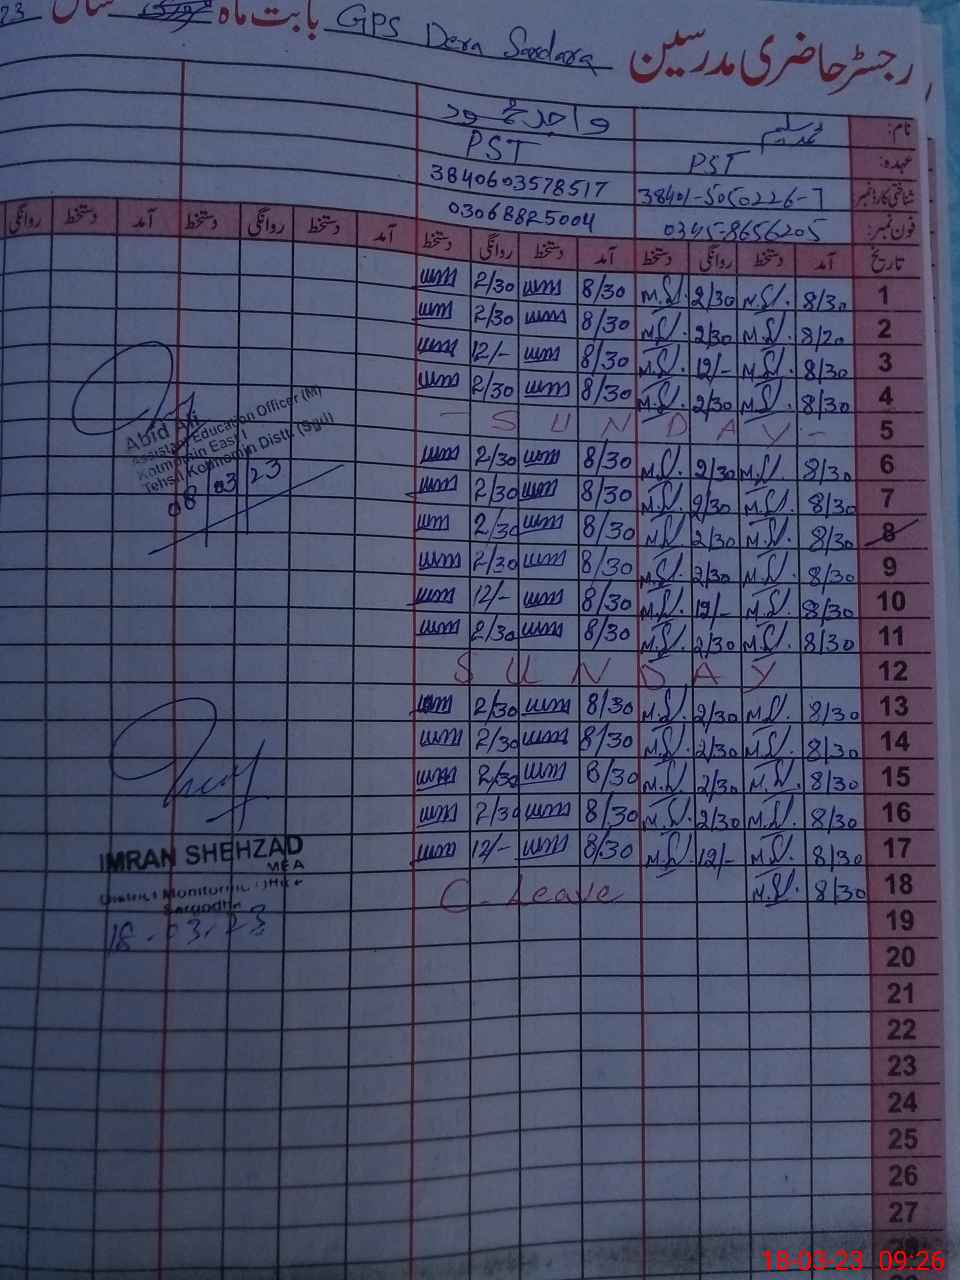 رجسٹر حاضری مدرسین GPS Dera Sardara بابت ماہ سال 23
نام: محمد سلیم واجد محمود
عہدہ: PST PST
شناختی کارڈ نمبر 38401-5050226-7 3840603578517
فون نمبر: 0345-8656205 03068825004
تاریخ آمد دستخط روانگی دستخط آمد دستخط روانگی دستخط آمد دستخط روانگی دستخط آمد دستخط روانگی
1 8/30 M.Sl. 2/30 M.Sl. 8/30 2/30
2 8/20 M.Sl. 2/30 M.Sl. 8/30 2/30
3 8/30 M.Sl. 12/- M.Sl. 8/30 12/-
4 8/30 M.Sl. 2/30 M.Sl. 8/30 2/30
5 - SUNDAY -
6 8/30 M.Sl. 2/30 M.Sl. 8/30 2/30
7 8/30 M.Sl. 2/30 M.Sl. 8/30 2/30
8 8/30 M.Sl. 2/30 M.Sl. 8/30 2/30
9 8/30 M.Sl. 2/30 M.Sl. 8/30 2/30
10 8/30 M.Sl. 12/- M.Sl. 8/30 12/-
11 8/30 M.Sl. 2/30 M.Sl. 8/30 2/30
12 SUNDAY
13 8/30 M.Sl. 2/30 M.Sl. 8/30 2/30
14 8/30 M.Sl. 2/30 M.Sl. 8/30 2/30
15 8/30 M.Sl. 2/30 M.Sl. 8/30 2/30
16 8/30 M.Sl. 2/30 M.Sl. 8/30 2/30
17 8/30 M.Sl. 12/- M.Sl. 8/30 12/-
18 8/30 M.Sl. C. Leave
19
20
21
22
23
24
25
26
27
Abid Ali
Assistant Education Officer (M)
Kotmomin East I
Tehsil Kotmomin Distt: (Sgd)
08/03/23
IMRAN SHEHZAD
MEA
District Monitoring Office
Sargodha
18-03-23
18-03-23 09:26